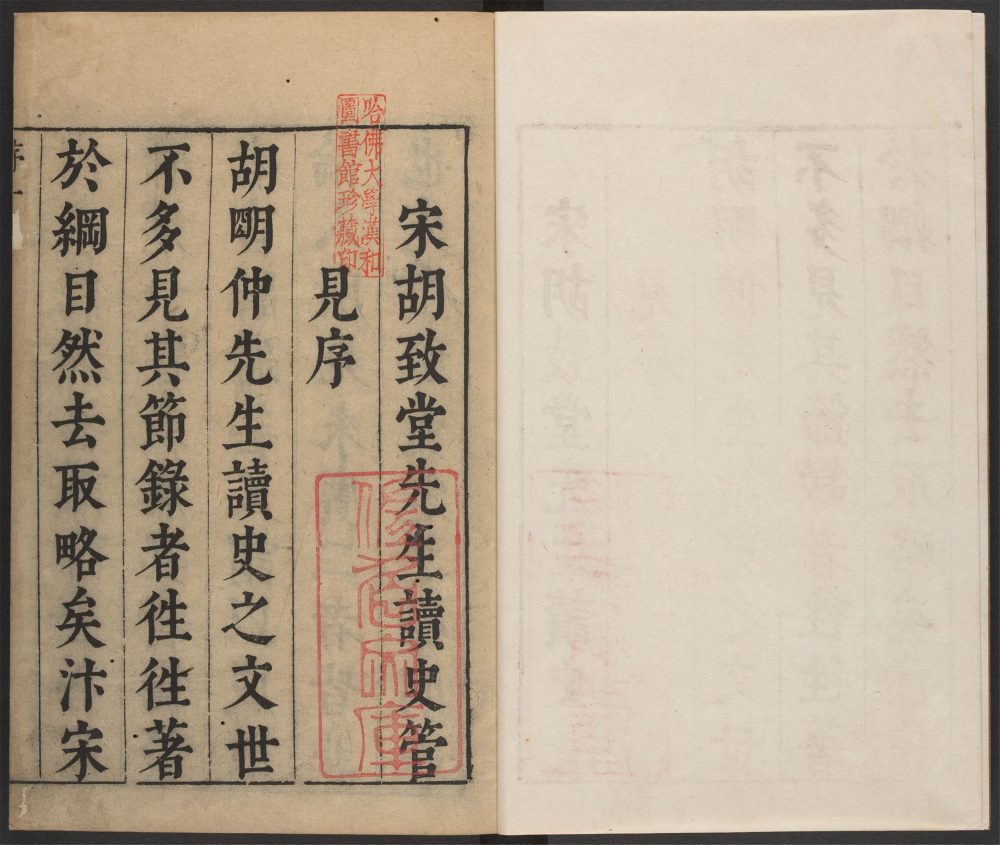 宋胡致堂先生讀史管
見序
胡明仲先生讀史之文世
不多見其節錄者徃徃著
於綱目然去取略矣汴宋
序一
哈佛大學漢和
圖書館珍藏印